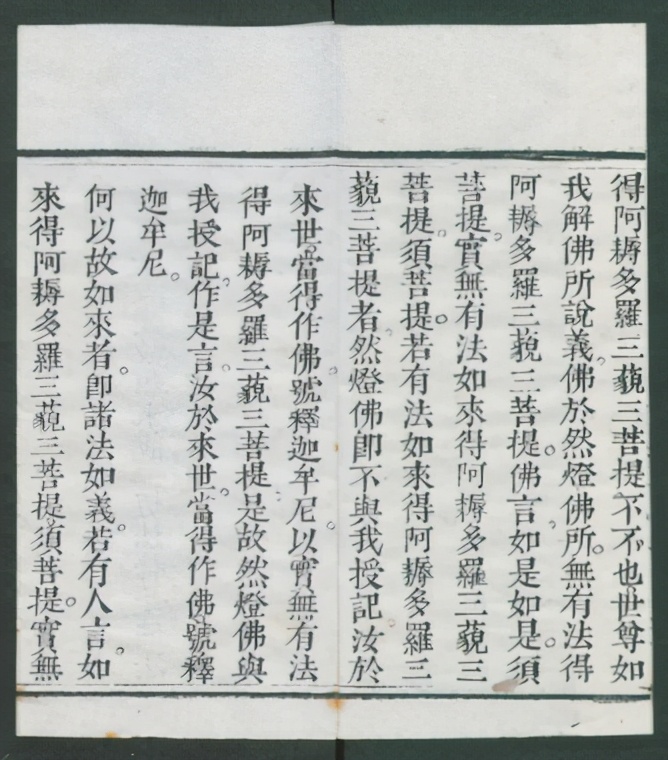 得阿耨多羅三藐三菩提不不也世尊如
我解佛所說義佛於然燈佛所。無有法得
阿耨多羅三藐三菩提。佛言。如是如是。須
菩提。實無有法如來得阿耨多羅三藐三
菩提。須菩提。若有法如來得阿耨多羅三
藐三菩提者。然燈佛即不與我授記。汝於
來世。當得作佛。號釋迦牟尼。以實無有法
得阿耨多羅三藐三菩提。是故然燈佛與
我授記。作是言。汝於來世。當得作佛。號釋
迦牟尼。
何以故如來者。即諸法如義。若有人言。如
來得阿耨多羅三藐三菩提。須菩提。實無